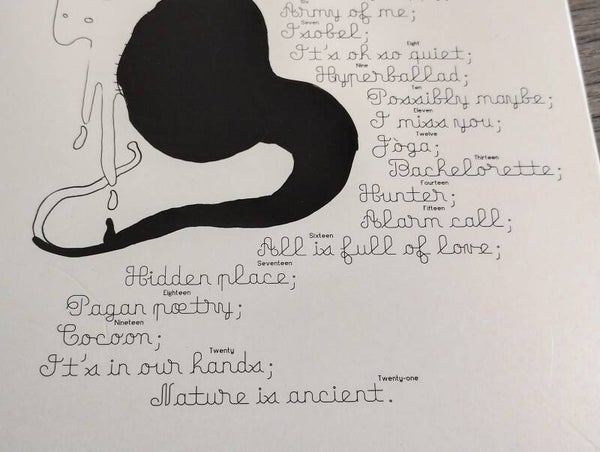 Army of me;
Seven
Isobel;
Eight
It's oh so quiet;
Nine
Hyperballad;
Ten
Possibly maybe;
Eleven
I miss you;
Twelve
Jòga;
Thirteen
Bachelorette;
Fourteen
Hunter;
Fifteen
Alarm call;
Sixteen
All is full of love;
Seventeen
Hidden place;
Eighteen
Pagan poetry;
Nineteen
Cocoon;
Twenty
It's in our hands;
Twenty-one
Nature is ancient.